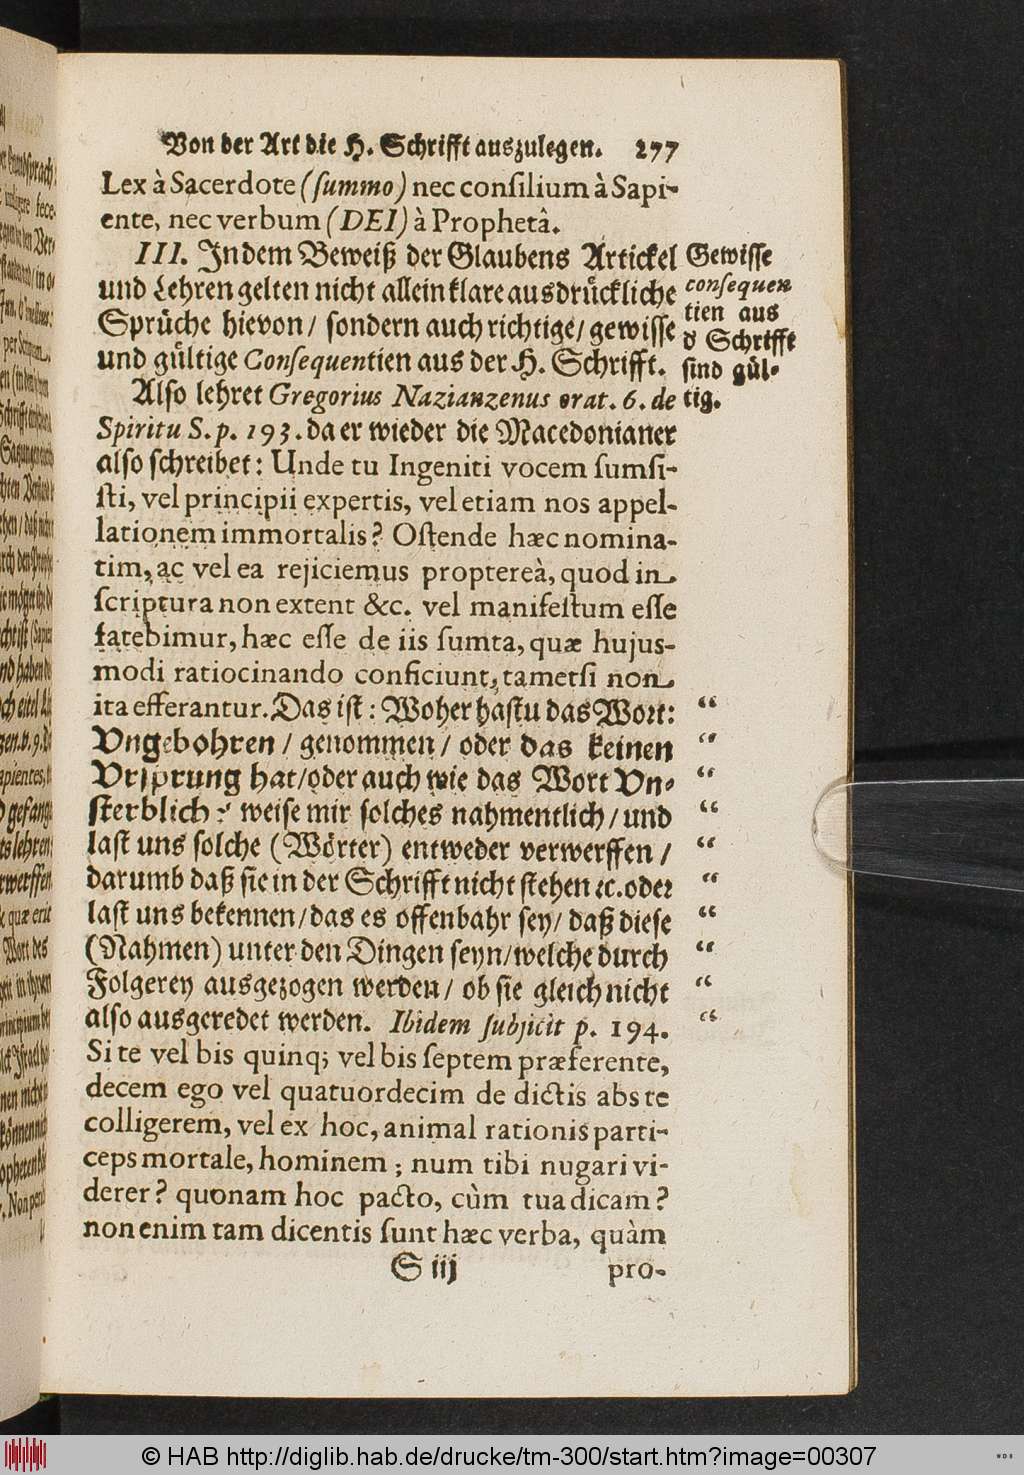 Von der Art die H. Schrifft auszulegen. 277
Lex à Sacerdote (ſummo) nec conſilium à Sapi-
ente, nec verbum (DEI) à Prophetâ.
III. Indem Beweiß der Glaubens Artickel
und Lehren gelten nicht allein klare ausdrückliche
Sprüche hievon / ſondern auch richtige / gewiſſe
und gültige Conſequentien aus der H. Schrifft.
Gewiſſe
conſequen
tien aus
d Schrifft
ſind gül-
tig.
Alſo lehret Gregorius Nazianzenus orat. 6. de
Spiritu S. p. 193. da er wieder die Macedonianer
alſo ſchreibet: Unde tu Ingeniti vocem ſumſi-
ſti, vel principii expertis, vel etiam nos appel-
lationem immortalis? Oſtende hæc nomina-
tim, ac vel ea rejiciemus proptereà, quod in
ſcriptura non extent &c. vel manifeſtum eſſe
fatebimur, hæc eſſe de iis ſumta, quæ hujus-
modi ratiocinando conficiunt, tametſi non
ita efferantur. Das iſt: Woher haſtu das Wort: “
Vngebohren / genommen / oder das keinen “
Vrſprung hat / oder auch wie das Wort Vn- “
ſterblich? weiſe mir ſolches nahmentlich / und “
laſt uns ſolche (Wörter) entweder verwerffen / “
darumb daß ſie in der Schrifft nicht ſtehen ꝛc. oder “
laſt uns bekennen / das es offenbahr ſey / daß dieſe “
(Nahmen) unter den Dingen ſeyn / welche durch “
Folgerey ausgezogen werden / ob ſie gleich nicht “
alſo ausgeredet werden. Ibidem ſubjicit p. 194. “
Si te vel bis quinq; vel bis ſeptem præferente,
decem ego vel quatuordecim de dictis abs te
colligerem, vel ex hoc, animal rationis parti-
ceps mortale, hominem; num tibi nugari vi-
derer? quonam hoc pacto, cùm tua dicam?
non enim tam dicentis ſunt hæc verba, quàm
S iij pro-
© HAB http://diglib.hab.de/drucke/tm-300/start.htm?image=00307